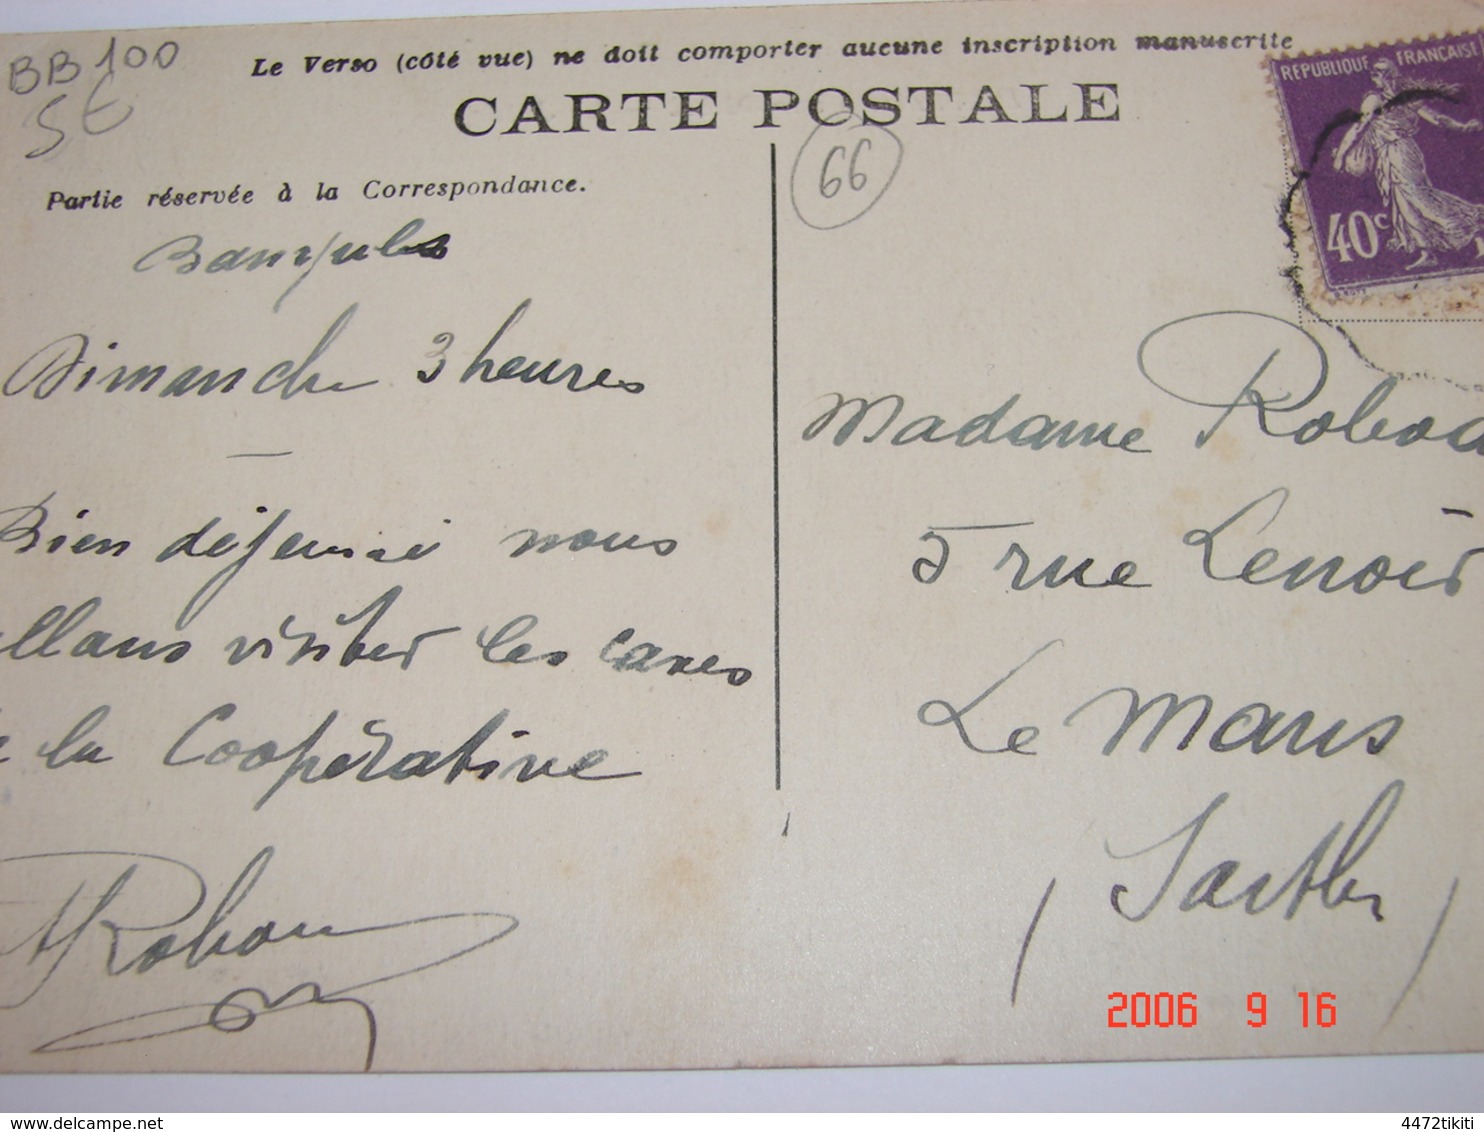 BB100
5€
Le Verso (côté vue) ne doit comporter aucune inscription manuscrite
CARTE POSTALE
66
REPUBLIQUE FRANÇAISE
40c
Partie réservée à la Correspondance.
Banyuls
Dimanche 3 heures
Bien déjeuné nous
allons visiter les caves
la Coopérative
Madame
5 rue Lenoir
Le Mans
(Sarthe)
2006 9 16
4472tikiti